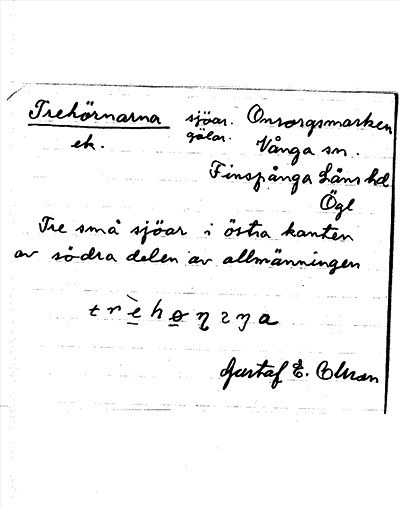 Trehörnarna sjöar. Onsorgsmarken
ek. gölar. Vånga sn.
Finspånga Läns hd
Ögl
Tre små sjöar i östra kanten
av södra delen av allmänningen
Gustaf E. Olsson